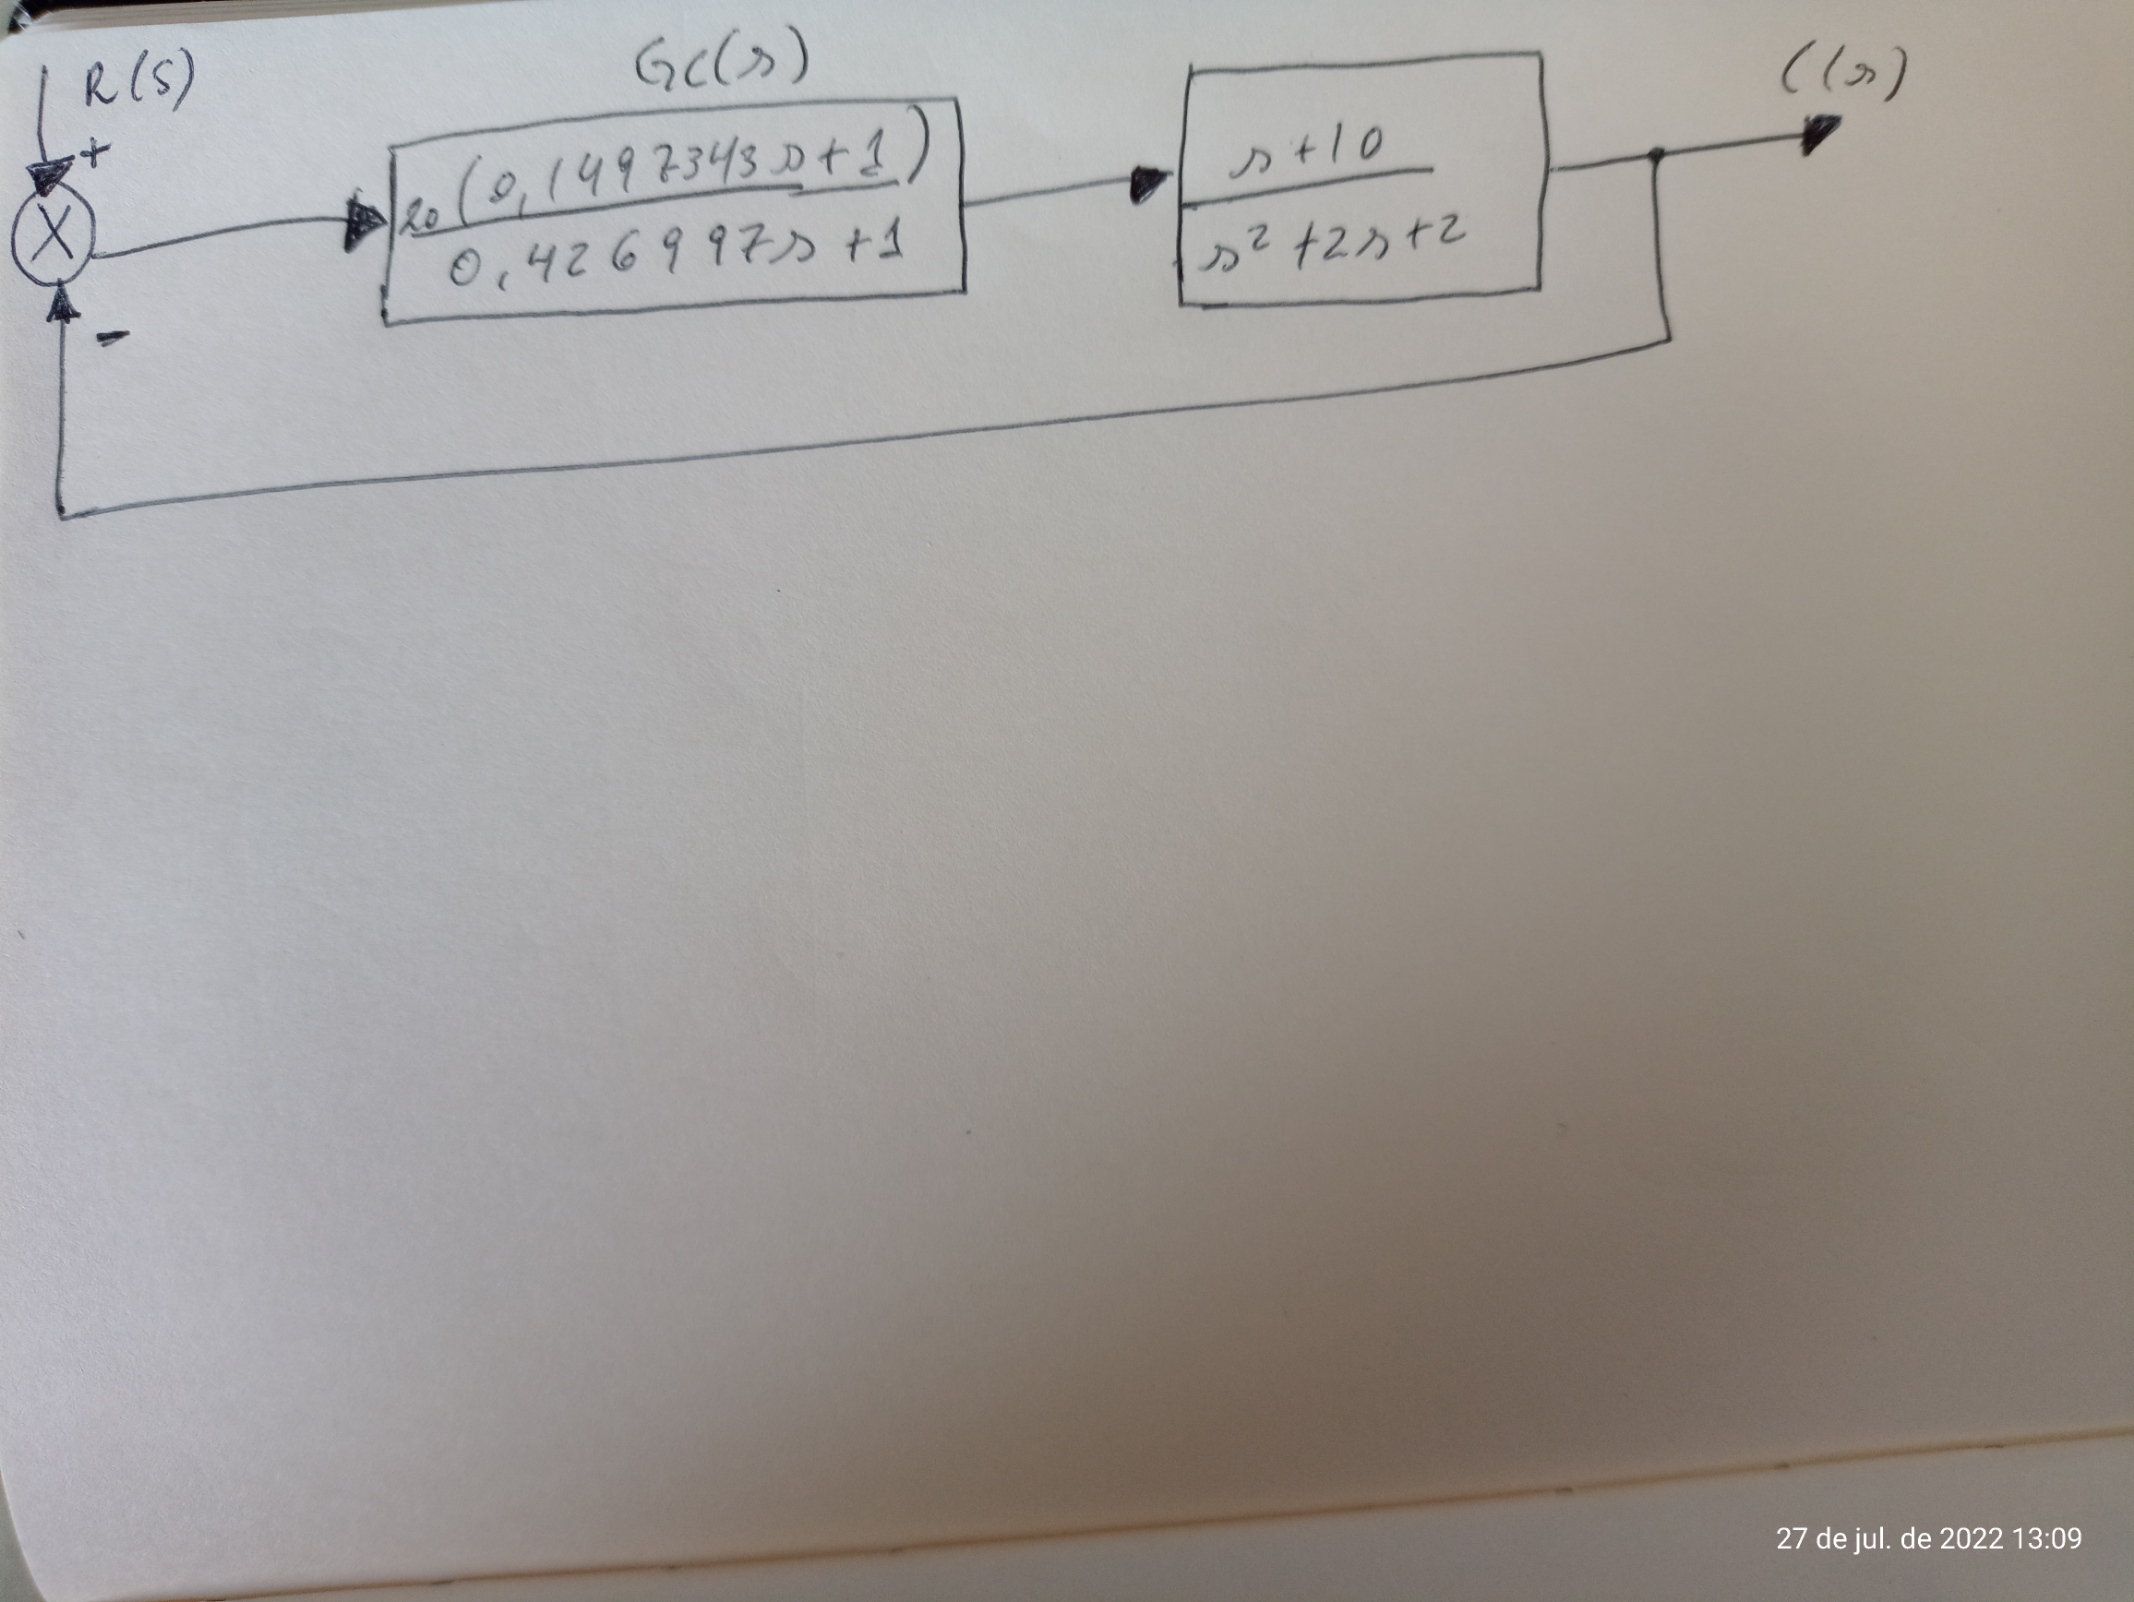 R(s)
Gc(s)
C(s)
+
20(0,1497343s+1)
0,426997s+1
s+10
s²+2s+2
-
27 de jul. de 2022 13:09